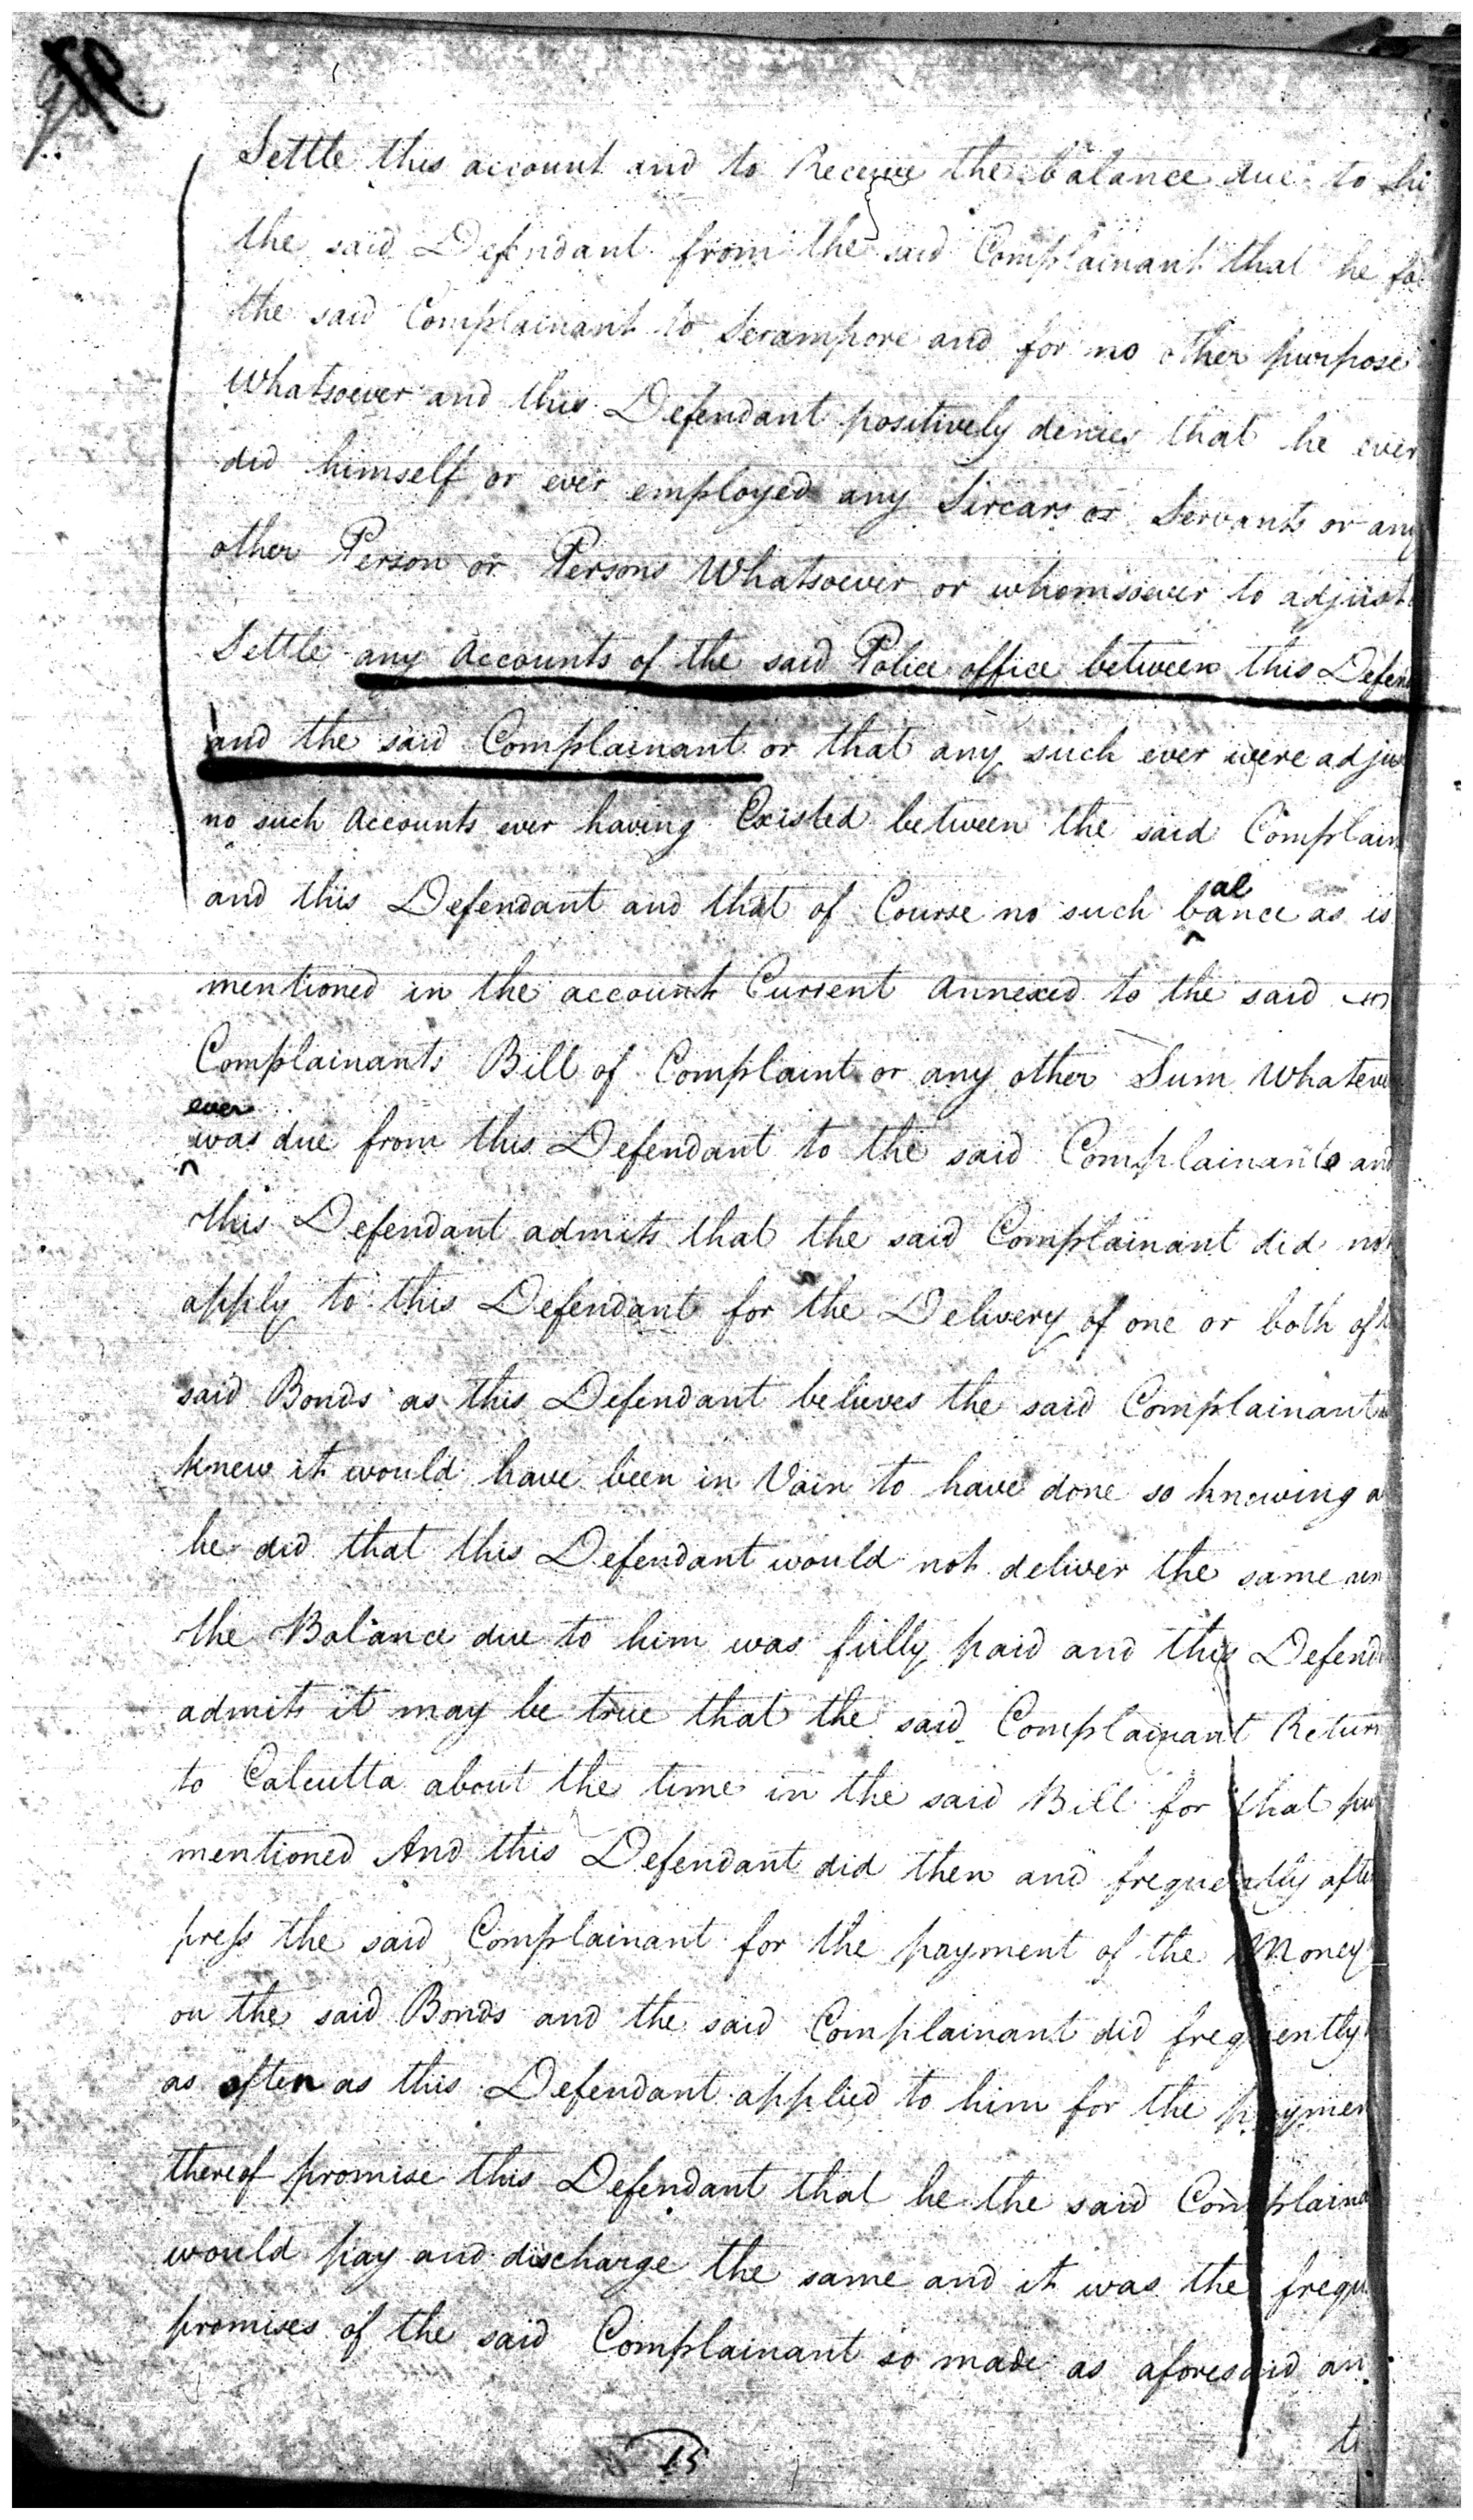 Settle this account and to Receive the balance due to hi
the said Defendant from the said Complainant that he fo
the said Complainant to Serampore and for no other purpose
Whatsoever and this Defendant positively denies that he ever
did himself or ever employed any Sircars or Servants or any
other Person or Persons Whatsoever or whomsoever to adjust
Settle any Accounts of the said Police office between this Defen
and the said Complainant or that any such ever were adjus
no such Accounts ever having Existed between the said Complain
and this Defendant and that of Course no such balance as is
mentioned in the account Current Annexed to the said
Complainants Bill of Complaint or any other Sum Whatever
ever was due from this Defendant to the said Complainants and
this Defendant admits that the said Complainant did not
apply to this Defendant for the Delivery of one or both of
said Bonds as this Defendant believes the said Complainant
knew it would have been in Vain to have done so knowing a
he did that this Defendant would not deliver the same un
the Balance due to him was fully paid and this Defend
admits it may be true that the said Complainant Return
to Calcutta about the time in the said Bill for that pur
mentioned And this Defendant did then and frequently after
press the said Complainant for the payment of the Money
on the said Bonds and the said Complainant did frequently
as often as this Defendant applied to him for the paymen
thereof promise this Defendant that he the said Complaina
would pay and discharge the same and it was the frequ
promises of the said Complainant so made as aforesaid an
t
15